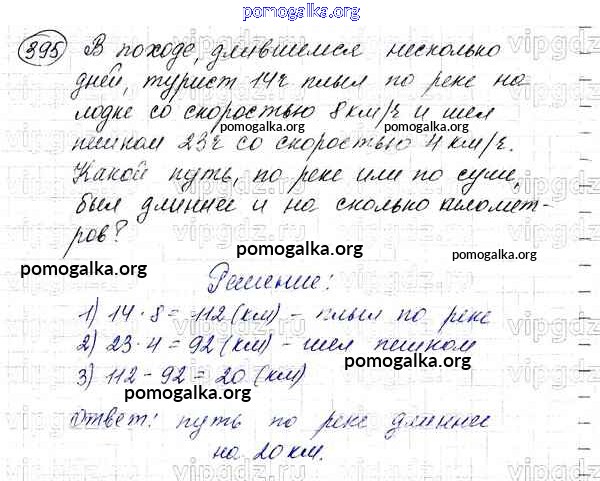 pomogalka.org
395 В походе, длившемся несколько
дней, турист 14ч плыл по реке на
лодке со скоростью 8 км/ч и шел
pomogalka.org pomogalka.org
пешком 23ч со скоростью 4 км/ч.
Какой путь, по реке или по суше,
был длиннее и на сколько километ-
ров?
pomogalka.org
pomogalka.org
Решение:
1) 14·8= 112 (км) - плыл по реке
pomogalka.org
2) 23·4 = 92 (км) - шел пешком
3) 112 - 92 = 20 (км)
pomogalka.org
Ответ: путь по реке длиннее
на 20 км.